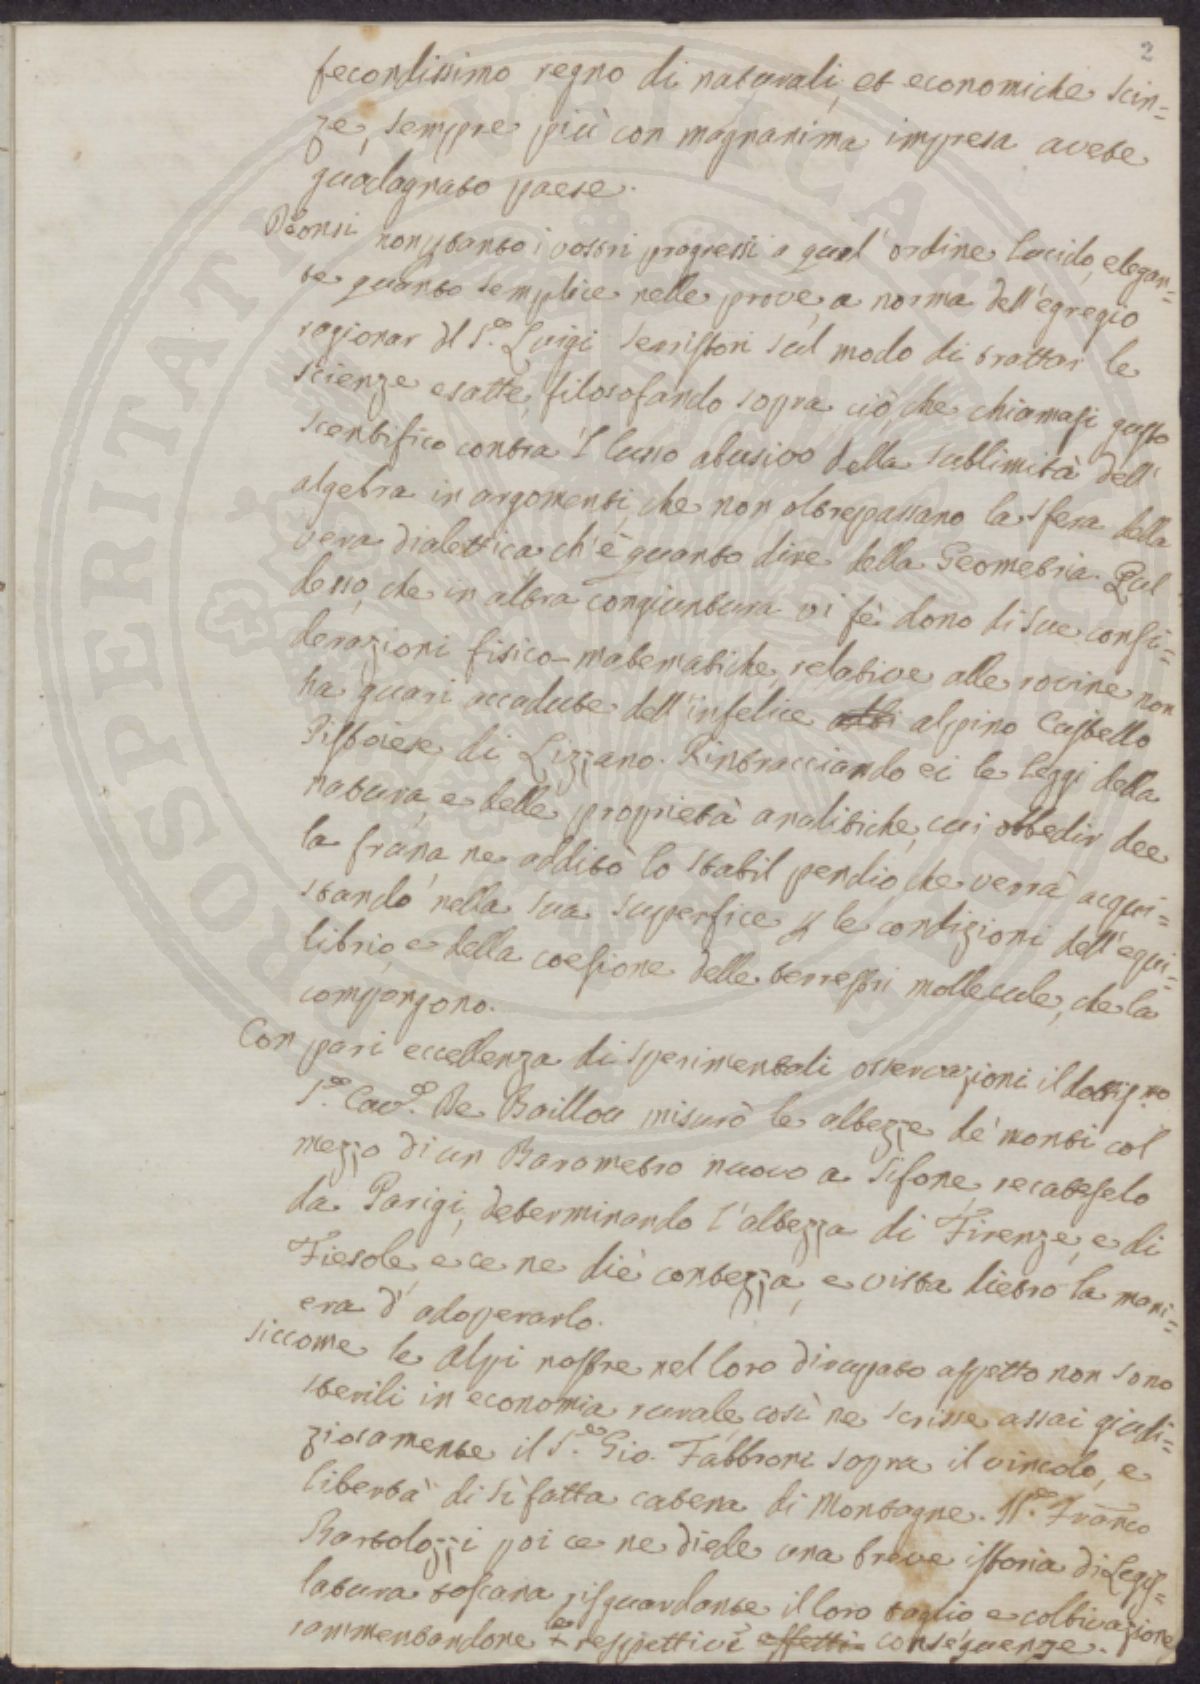 2
fecondissimo regno di naturali, et economiche scien=
ze, sempre più con magnanima impresa avete
guadagnato paese.
nonpertanto i vostri progressi a qual' ordine lucido, elegan=
te quanto semplice nelle prove, a norma dell'egregio
ragionar del S.re Luigi Serristori sul modo di trattar le
scienze esatte, filosofando sopra ciò, che chiamasi gusto
scentifico contra 'l lusso abusivo della sublimità dell'
algebra in argomenti, che non oltrepassano la sfera della
vera dialettica, ch'è quanto dire della Geometria. Quel
desso, che in altra congiuntura vi fè dono di sue consi=
derazioni fisico-matematiche, relative alle rovine non
ha guari accadute dell'infelice alpino Castello
Pistoiese di Lizzano. Rintracciando ei le leggi della
natura, e delle proprietà analitiche, cui obbedir dee
la frana, ne additò lo stabil pendio, che verrà acqui=
stando nella sua superfice p le condizioni dell'equi=
librio, e della coesione delle terrestri mollecule, che la
compongono.
Con pari eccellenza di sperimentali osservazioni il
S.re Cav.re De Baillou misurò le altezze de' monti col
mezzo di un Barometro nuovo a sifone, recatoselo
da Parigi, determinando l'altezza di Firenze, e di
Fiesole, e ce ne diè contezza, e vista dietro la mani=
era d'adoperarlo.
Siccome le alpi nostre nel loro dirupato aspetto non sono
sterili in economia rurale, così ne scrisse assai giudi=
ziosamente il S.re Gio. Fabbroni sopra il vincolo, e
libertà di sì fatta catena di Montagne. Il S.re Franco
Bartolozzi poi ce ne diede una breve istoria di Legis=
latura toscana risguardante il loro taglio e coltivazione
rammentandone le respettive effetti conseguenze.